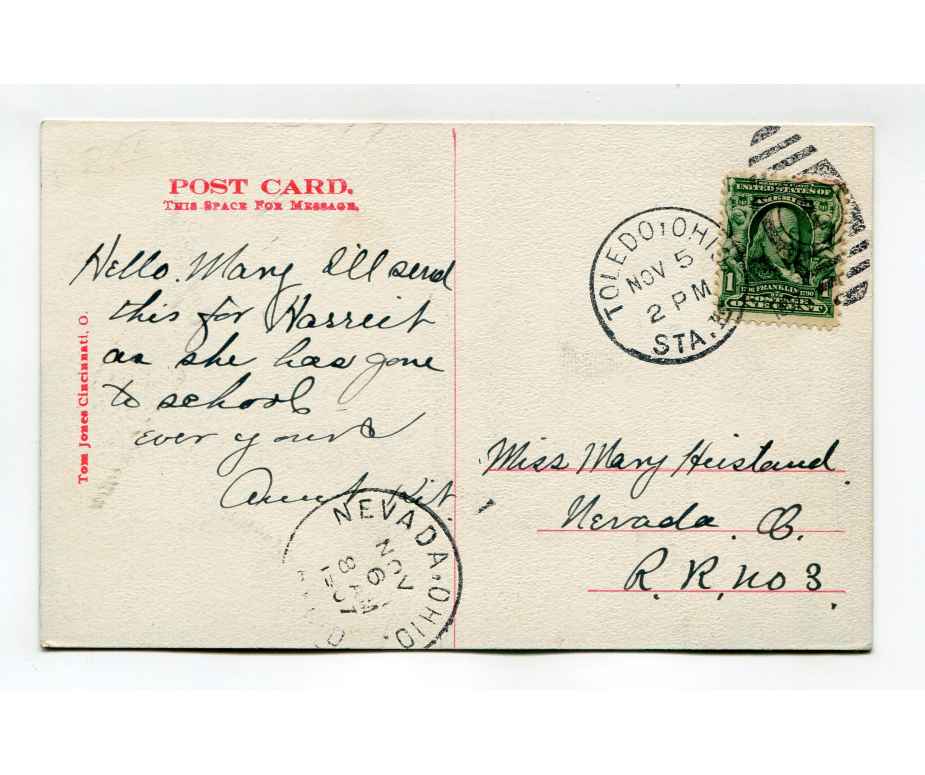 POST CARD.
THIS SPACE FOR MESSAGE.
Hello. Mary I'll send
this for Harreit
as she has gone
to school
ever yours
Aunt Kit.
Tom Jones Cincinnati, O.
NEVADA, OHIO.
NOV
6
8 AM
1907
TOLEDO, OHIO
NOV 5
2 PM
STA.
UNITED STATES OF
AMERICA
1706 FRANKLIN 1790
POSTAGE
1 ONE CENT
Miss Mary
Nevada. O.
R. R. no 3